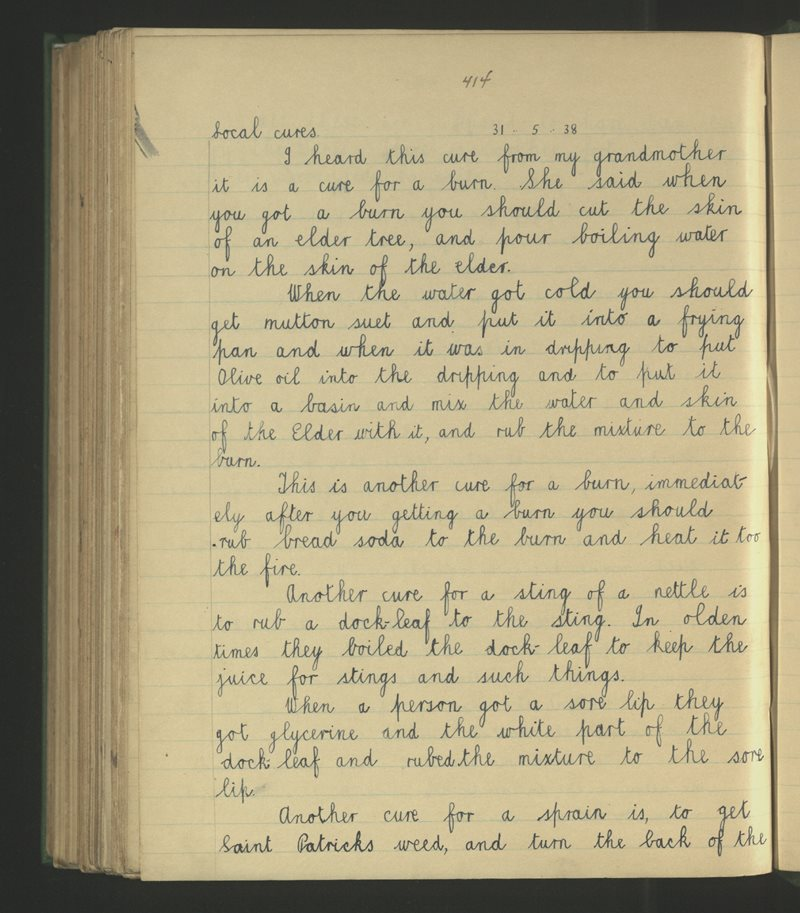 414
Local cures. 31. 5. 38
I heard this cure from my grandmother
it is a cure for a burn. She said when
you got a burn you should cut the skin
of an elder tree, and pour boiling water
on the skin of the elder.
When the water got cold you should
get mutton suet and put it into a frying
pan and when it was in dripping to put
Olive oil into the dripping and to put it
into a basin and mix the water and skin
of the Elder with it, and rub the mixture to the
burn.
This is another cure for a burn, immediat-
ely after you getting a burn you should
rub bread soda to the burn and heat it too
the fire.
Another cure for a sting of a nettle is
to rub a dock-leaf to the sting. In olden
times they boiled the dock-leaf to keep the
juice for stings and such things.
When a person got a sore lip they
got glycerine and the white part of the
dock leaf and rubed the mixture to the sore
lip.
Another cure for a sprain is, to get
Saint Patricks weed, and turn the back of the